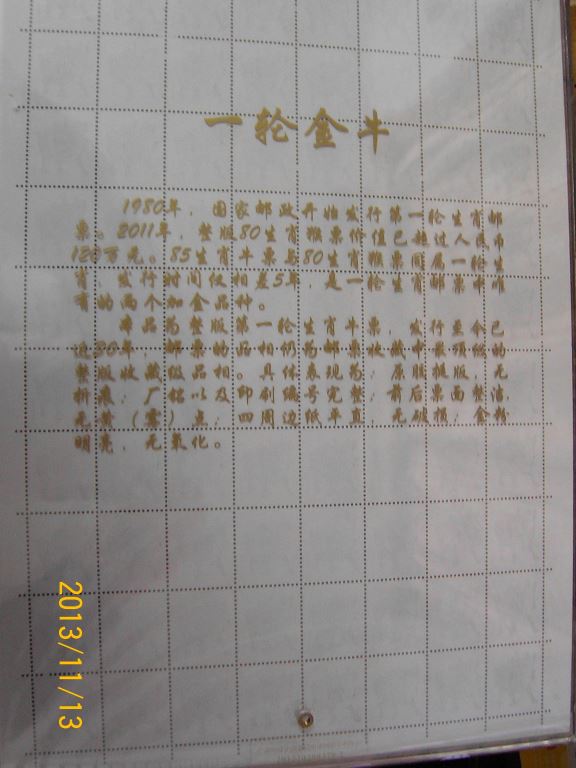 一轮金牛
1980年，国家邮政开始发行第一轮生肖邮
票。2011年，整版80生肖猴票价值已超过人民币
120万元。85生肖牛票与80生肖猴票同属一轮生
肖，发行时间仅相差5年，是一轮生肖邮票中唯
有的两个加金品种。
本品为整版第一轮生肖牛票，发行至今已
近30年，邮票的品相仍为邮票收藏中最顶级的
整版收藏级品相。具体表现为：原胶挺版，无
折痕；厂铭以及印刷编号完整；前后票面整洁，
无黄（雾）点；四周边纸平直，无破损；金粉
明亮，无氧化。
2013/11/13